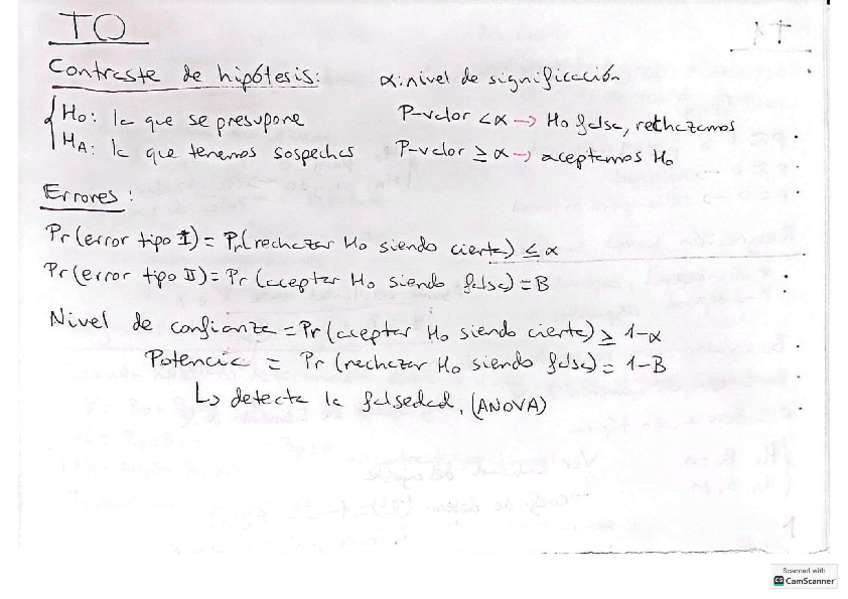 T0
Contraste de hipótesis:
α: nivel de significación
H0: la que se presupone
HA: la que tenemos sospechas
P-valor < α → H0 falsa, rechazamos
P-valor ≥ α → aceptamos H0
Errores:
Pr(error tipo I) = Pr(rechazar H0 siendo cierta) ≤ α
Pr(error tipo II) = Pr(aceptar H0 siendo falsa) = B
Nivel de confianza = Pr(aceptar H0 siendo cierta) ≥ 1-α
Potencia = Pr(rechazar H0 siendo falsa) = 1-B
↳ detecta la falsedad, (ANOVA)
Scanned with
CS CamScanner